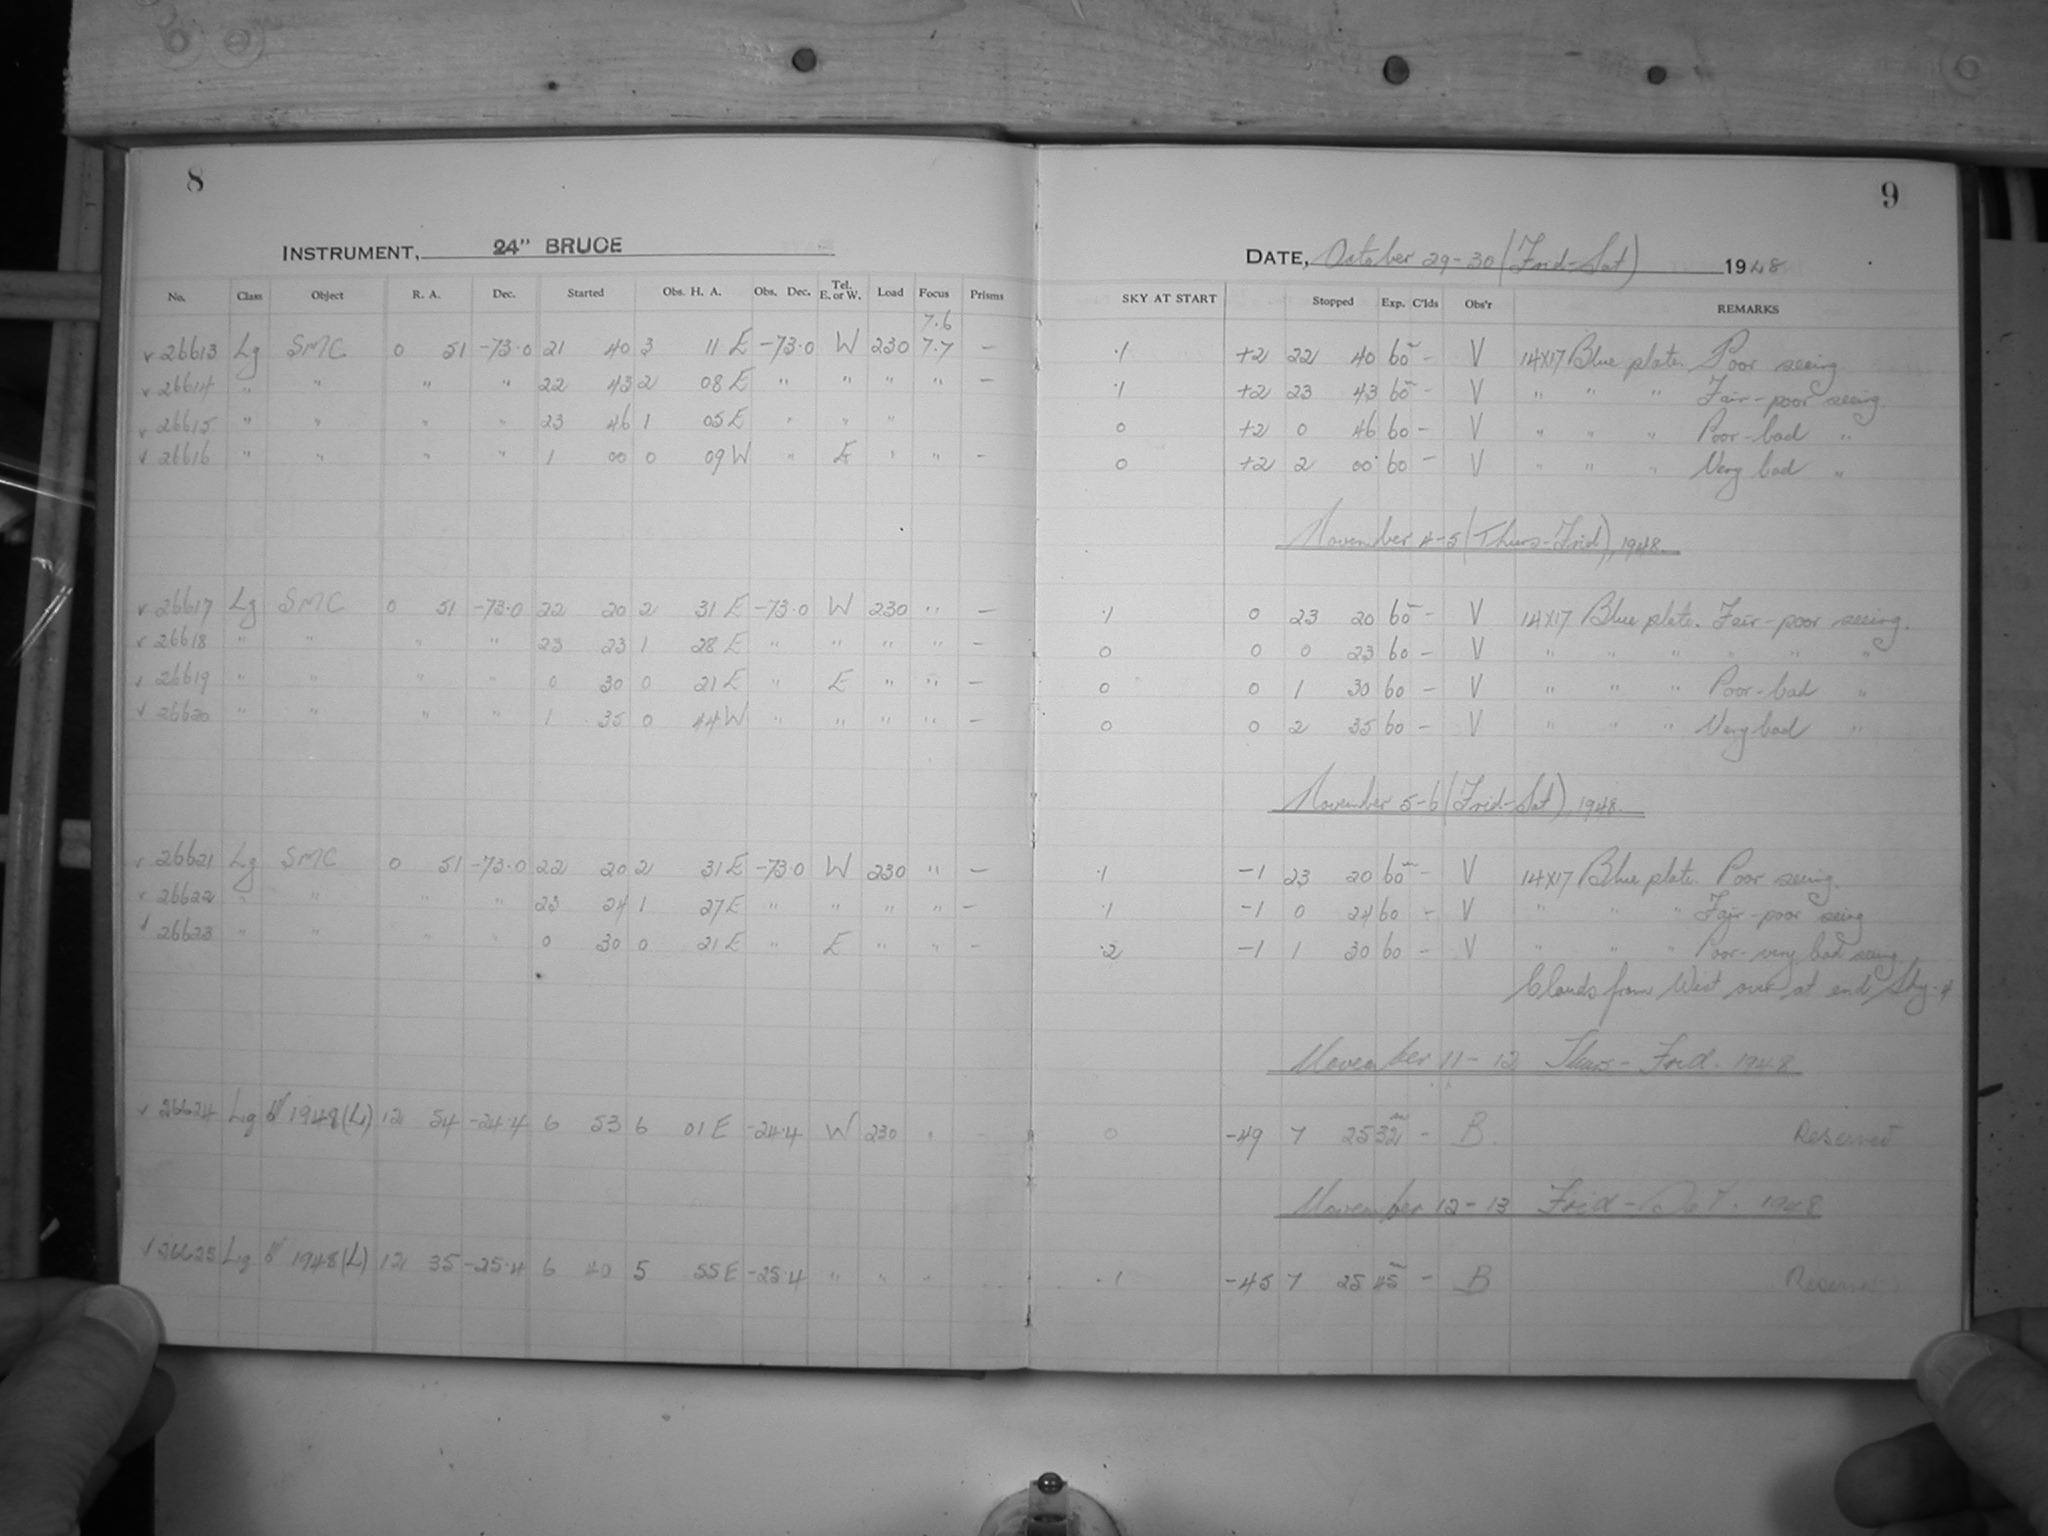 8
INSTRUMENT, 24" BRUCE
No. Class Object R. A. Dec. Started Obs. H. A. Obs. Dec. Tel. E. or W. Load Focus Prisms
7.6
v 26613 Lg SMC 0 51 -73.0 21 40 3 11 E -73.0 W 230 7.7 -
v 26614 " " " " 22 43 2 08 E " " " " -
v 26615 " " " " 23 46 1 05 E " " "
v 26616 " " " " 1 00 0 09 W " E " " -
v 26617 Lg SMC 0 51 -73.0 22 20 2 31 E -73.0 W 230 " -
v 26618 " " " " 23 23 1 28 E " " " " -
v 26619 " " " " 0 30 0 21 E " E " " -
v 26620 " " " " 1 35 0 44 W " " " " -
v 26621 Lg SMC 0 51 -73.0 22 20 2 31 E -73.0 W 230 " -
v 26622 " " " " 23 24 1 27 E " " " " -
v 26623 " " " " 0 30 0 21 E " E " " -
v 26624 Lg 1948 (L) 12 54 -24.4 6 53 6 01 E -24.4 W 230 " -
v 26625 Lg 1948 (L) 12 35 -25.4 6 40 5 55 E -25.4 " " "
9
DATE, October 29-30 (Frid-Sat) 1948
SKY AT START Stopped Exp. C'lds Obs'r REMARKS
.1 +2 22 40 60m - V 14X17 Blue plate. Poor seeing
.1 +2 23 43 60 - V " " " Fair-poor seeing.
0 +2 0 46 60 - V " " " Poor-bad "
0 +2 2 00 60 - V " " " Very bad "
November 4-5 (Thurs-Frid), 1948.
.1 0 23 20 60m - V 14X17 Blue plate. Fair-poor seeing.
0 0 0 23 60 - V " " " " " "
0 0 1 30 60 - V " " " Poor-bad "
0 0 2 35 60 - V " " " Very bad "
November 5-6 (Frid-Sat), 1948.
.1 -1 23 20 60m - V 14X17 Blue plate. Poor seeing.
.1 -1 0 24 60 - V " " " Fair-poor seeing
.2 -1 1 30 60 - V " " " Poor-very bad seeing.
Clouds from West over at end Sky .4
November 11-12 Thurs-Frid. 1948
0 -49 7 25 32m - B. Reserved
November 12-13 Frid-Sat. 1948
.1 -45 7 25 45m - B Reserved